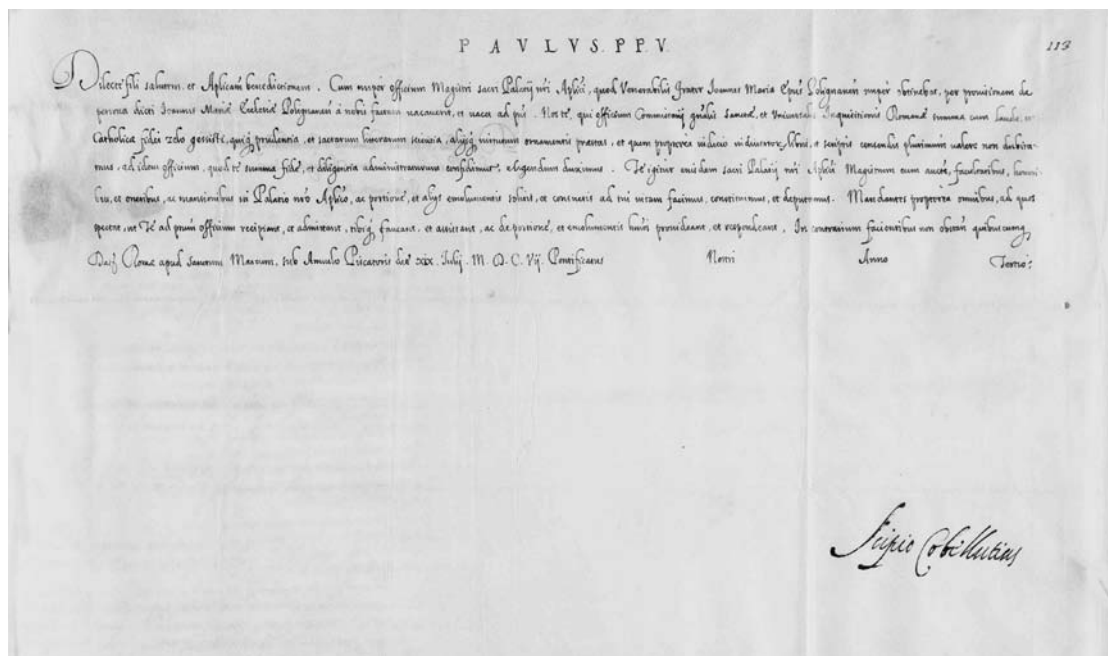 PAVLVS. PP. V.
113
Dilecte fili salutem, et Aplicam benedictionem. Cum nuper officium Magistri sacri Palatij nri Aplici, quod Venerabilis frater Ioannes Maria Epus Polignanen nuper obtinebat, per provisionem de
persona dicti Ioannis Mariæ Ecclesiæ Polignanen à nobis factam vacaverit, et vacet ad pñs. Nos te, qui officium Commissarij gñalis Sanctæ, et Universalis Inquisitionis Romanæ summa cum laude, et
Catholicæ fidei zelo gessisti, quiq prudentia, et sacrarum literarum scientia, alijsq virtutum ornamentis præstas, et quem propterea iudicio in divertere libris, et scriptis censendis plurimum valere non dubita-
mus, ad idem officium, quod te summa fide, et diligentia administraturum confidimus, eligendum duximus. Te igitur eiusdem sacri Palatij nri Aplici Magistrum cum auctte, facultatibus, honori-
bus, et oneribus, ac mansionibus in Palatio nro Aplico, ac portione, et alijs emolumentis solitis, et consuetis ad tui vitam facimus, constituimus, et deputamus. Mandantes propterea omnibus, ad quos
spectat, ut Te ad pñtum officium recipiant, et admittant, tibiq faveant, et assistant, ac de portione, et emolumentis huiusmodi provideant, et respondeant. In contrarium facientibus non obstañ quibuscunq
Dat Romæ apud Sanctum Marcum, sub Annulo Piscatoris die xxix. Iulij. M. D. C. Vij. Pontificatus Nostri Anno Tertio:
Scipio Cobellutius